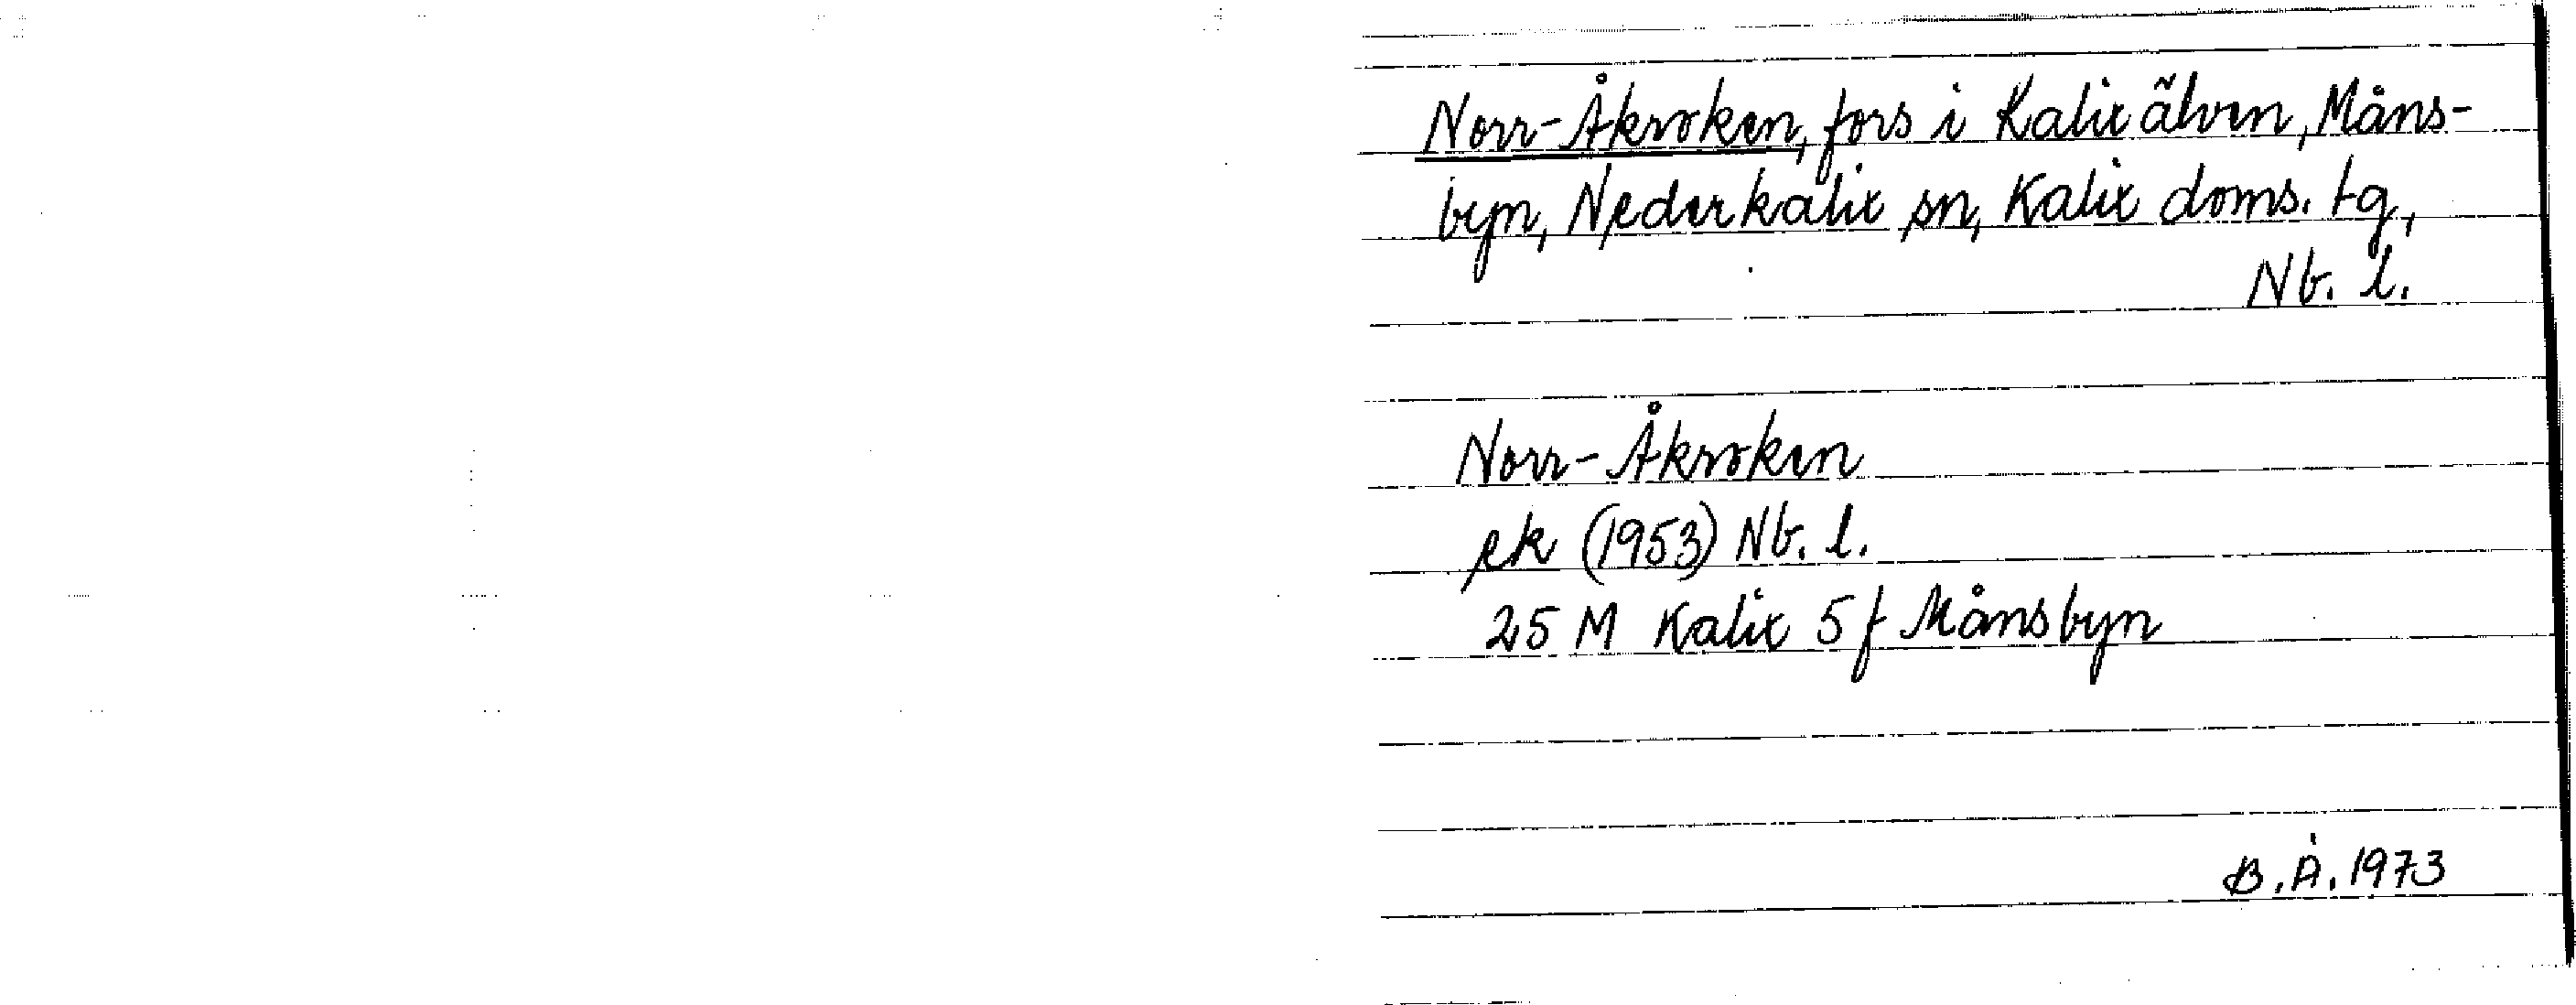 Norr-Åkroken, fors i Kalix älven, Måns-
byn, Nederkalix sn, Kalix doms. tg,
Nb. l.
Norr-Åkroken
ek (1953) Nb. l.
25 M Kalix 5 f Månsbyn
B.Å. 1973